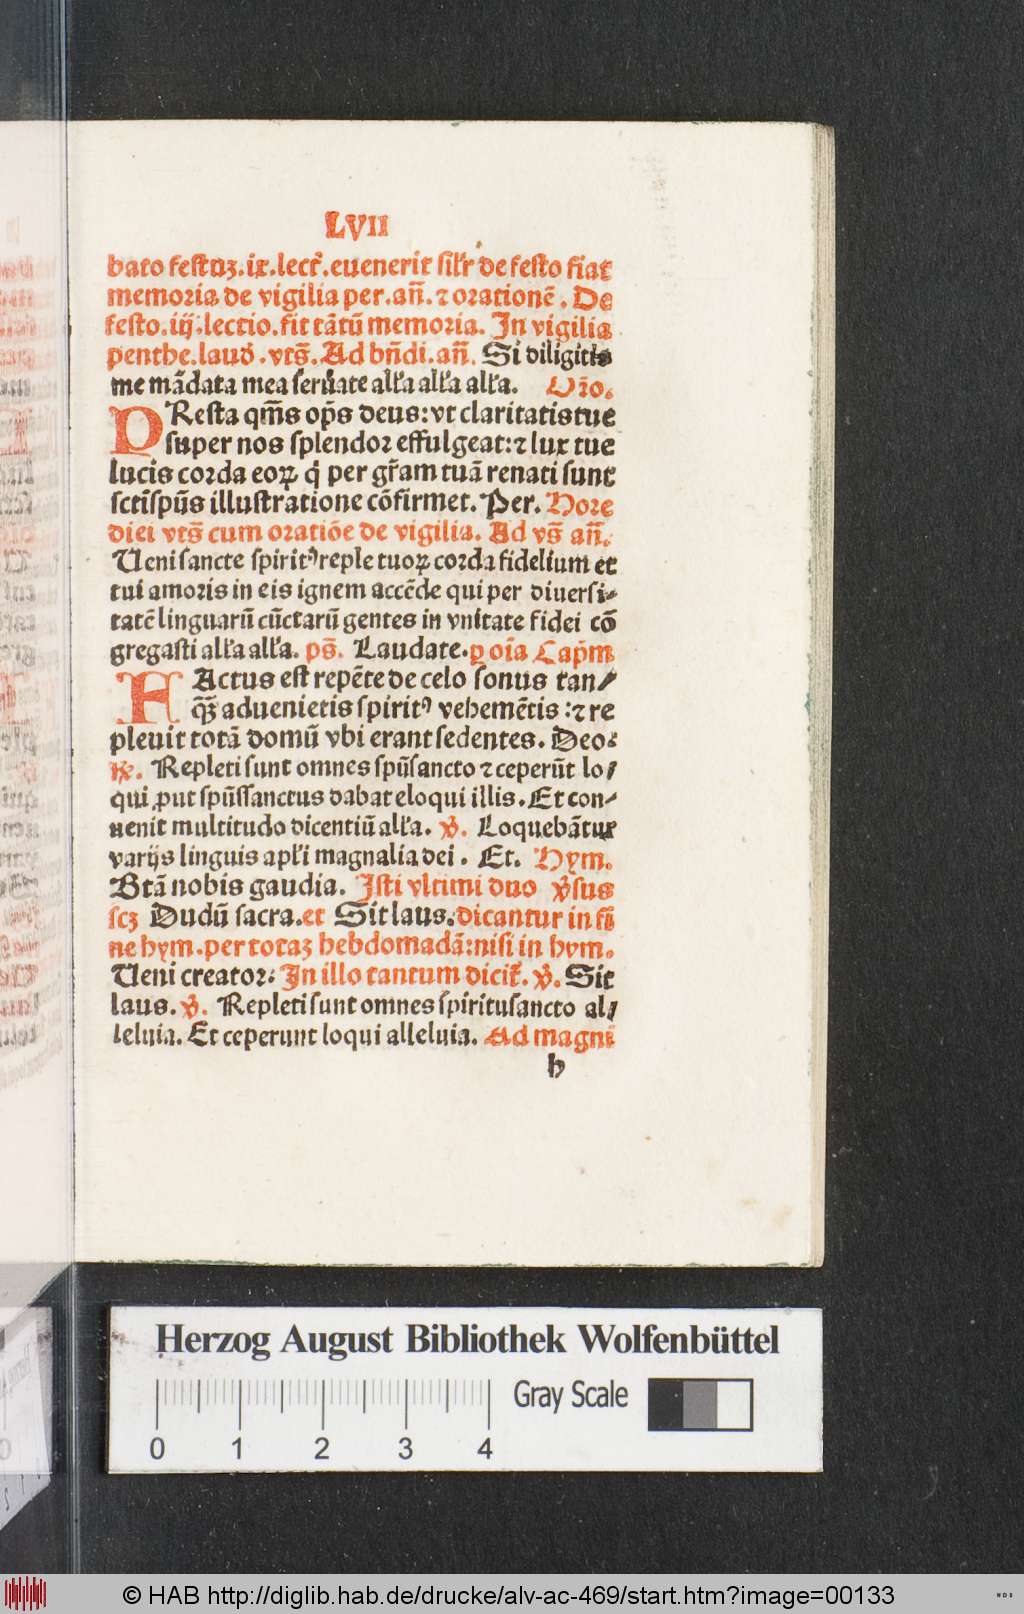 LVII
bato festuʒ.ix.lect̃.evenerit sil̃r de festo fiat
memoria de vigilia per.an̄.⁊ orationē. De
festo.iij.lectio.fit tātū memoria. In vigilia
penthe.laud̕.vts̄. Ad bn̄di.an̄. Si diligitis
me mādata mea seruate all̃a all̃a all̃a. Or̃o.
PResta qm̄s op̄s deus: vt claritatis tue
super nos splendor effulgeat: ⁊ lux tue
lucis corda eoꝝ q̇ per gr̃am tuā renati sunt
sctīspūs illustratione cōfirmet. Per. Hore
diei vts̄ cum oratiōe de vigilia. Ad vs̄ an̄.
Veni sancte spiritꝰ reple tuoꝝ corda fidelium et
tui amoris in eis ignem accēde qui per diuersi⸗
tatē linguarū cūctarū gentes in vnitate fidei cō
gregasti all̃a all̃a. ps̄. Laudate. ꝑ oīa Cap̄m
FActus est repēte de celo sonus tan⸗
qꝫ̄ aduenietis spiritꝰ vehemētis : ⁊ re
pleuit totā domū vbi erant sedentes. Deo.
℟. Repleti sunt omnes spūsancto ⁊ ceperūt lo⸗
qui ꝓut spūssanctus dabat eloqui illis. Et con⸗
uenit multitudo dicentiū all̃a. ℣. Loquebātur
varijs linguis apl̃i magnalia dei. Et. Hym.
Btā nobis gaudia. Isti vltimi duo ℣sus
scꝫ Dudū sacra. et Sit laus. dicantur in fi
ne hym. per totaʒ hebdomadā: nisi in hym.
Veni creator: In illo tantum dicit̃. ℣. Sit
laus. ℣. Repleti sunt omnes spiritusancto al⸗
leluia. Et ceperunt loqui alleluia. Ad magni
h
Herzog August Bibliothek Wolfenbüttel
0 1 2 3 4 Gray Scale
© HAB http://diglib.hab.de/drucke/alv-ac-469/start.htm?image=00133